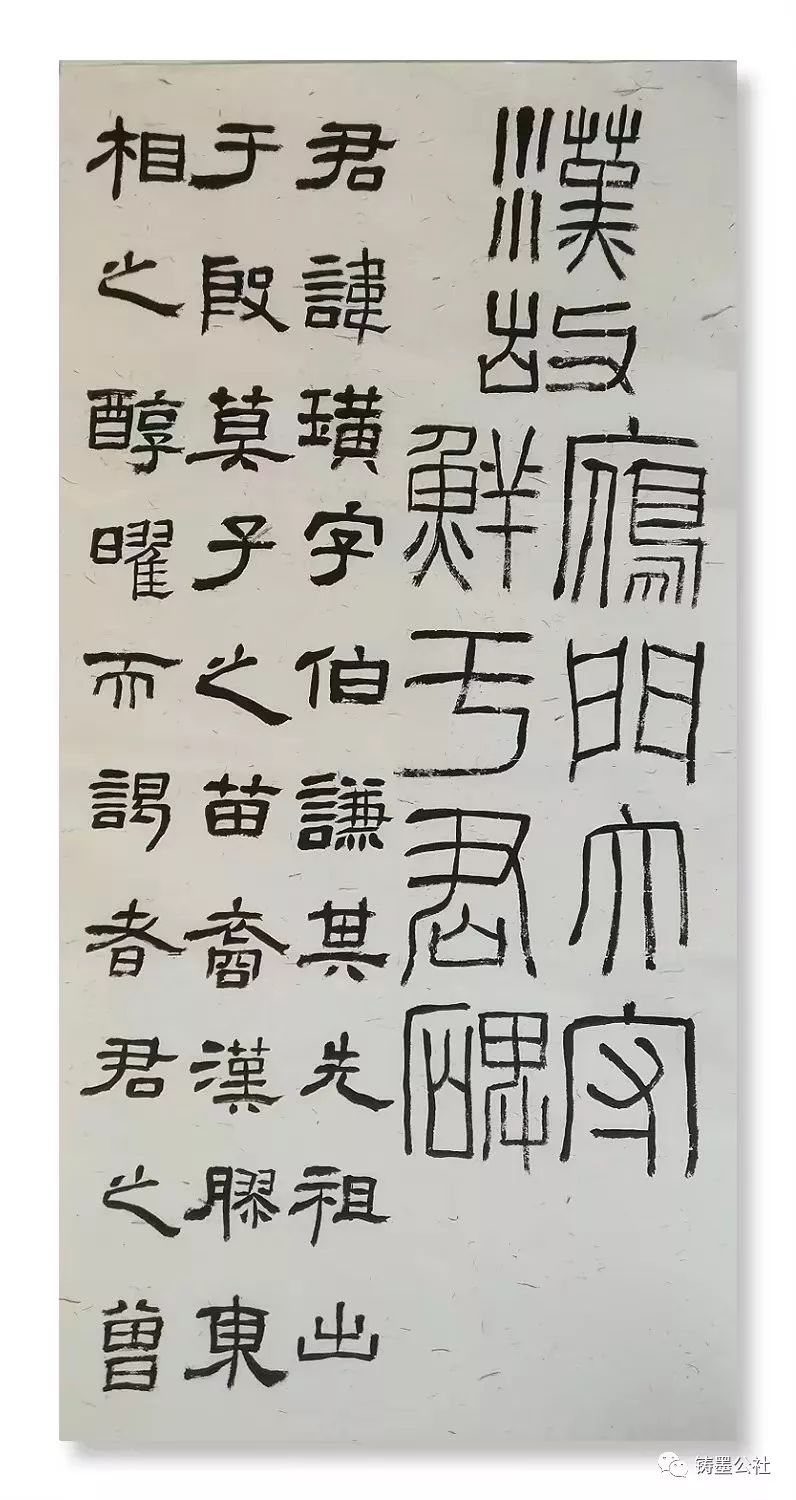 漢故
鴈門大守
鮮于君碑
君諱璜字伯謙其先祖出
于殷箕子之苗裔漢膠東
相之醇曜而謁者君之曾
铸墨公社